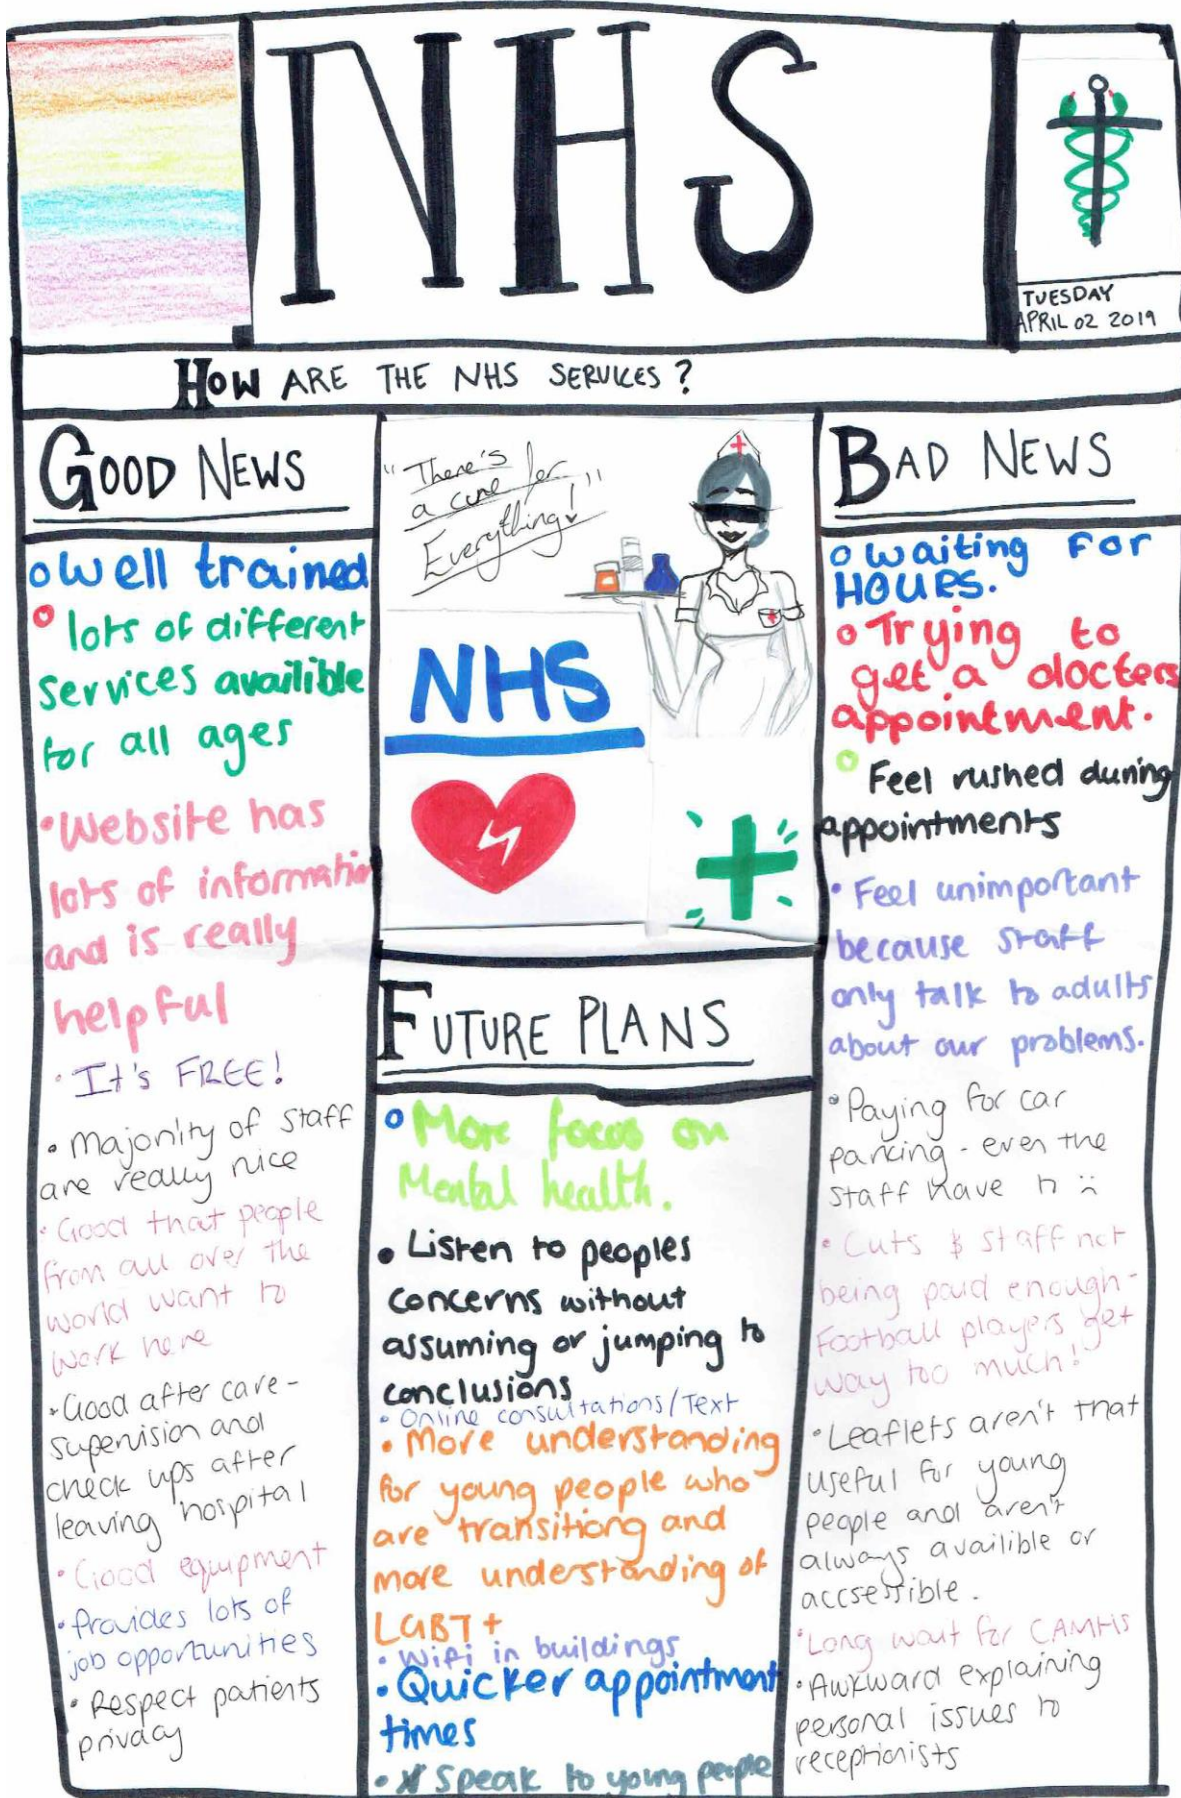 NHS
TUESDAY
APRIL 02 2019
HOW ARE THE NHS SERVICES?
GOOD NEWS
Well trained
lots of different
services availible
for all ages
Website has
lots of information
and is really
helpful
It's FREE!
Majority of staff
are really nice
Good that people
from all over the
world want to
work here
Good after care-
supervision and
check ups after
leaving hospital
Good equipment
Provides lots of
job opportunities
Respect patients
privacy
"There's
a cure for
Everything!"
NHS
FUTURE PLANS
More focus on
Mental health.
Listen to peoples
concerns without
assuming or jumping to
conclusions
Online consultations/Text
More understanding
for young people who
are transitiong and
more understanding of
LGBT+
Wifi in buildings
Quicker appointment
times
Speak to young people
BAD NEWS
waiting For
HOURS.
Trying to
get a docters
appointment.
Feel rushed during
appointments
Feel unimportant
because staff
only talk to adults
about our problems.
Paying for car
parking - even the
staff have to :(
Cuts & staff not
being paid enough-
Football players get
way too much!
Leaflets aren't that
useful for young
people and aren't
always availible or
accsessible.
Long wait for CAMHs
Awkward explaining
personal issues to
receptionists